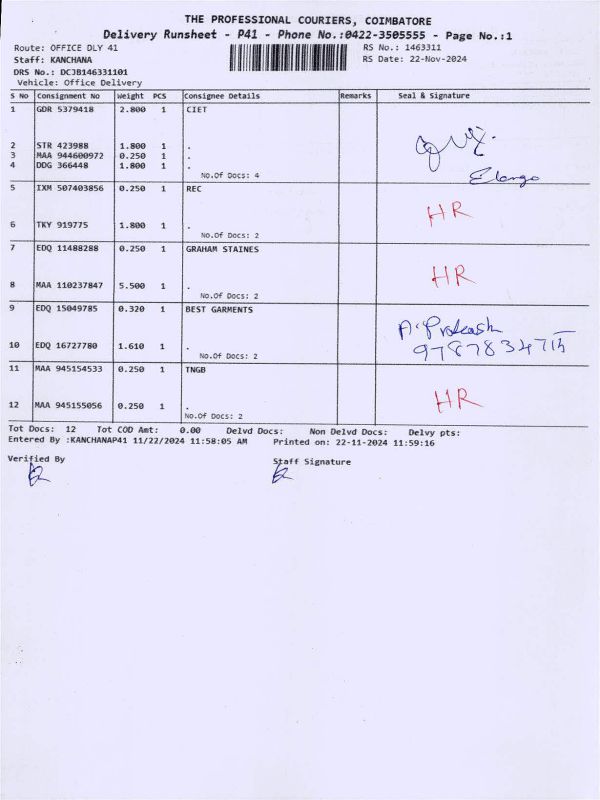 THE PROFESSIONAL COURIERS, COIMBATORE
Delivery Runsheet - P41 - Phone No.:0422-3505555 - Page No.:1
Route: OFFICE DLY 41 RS No.: 1463311
Staff: KANCHANA RS Date: 22-Nov-2024
DRS No.: DCJB146331101
Vehicle: Office Delivery
S No Consignment No Weight PCS Consignee Details Remarks Seal & Signature
1 GDR 5379418 2.800 1 CIET
2 STR 423988 1.800 1 .
3 MAA 944600972 0.250 1 .
4 DDG 366448 1.800 1 .
No.Of Docs: 4 Elango
5 IXM 507403856 0.250 1 REC
HR
6 TKY 919775 1.800 1 .
No.Of Docs: 2
7 EDQ 11488288 0.250 1 GRAHAM STAINES
HR
8 MAA 110237847 5.500 1 .
No.Of Docs: 2
9 EDQ 15049785 0.320 1 BEST GARMENTS
A. Prakash
10 EDQ 16727780 1.610 1 .
No.Of Docs: 2
11 MAA 945154533 0.250 1 TNGB
HR
12 MAA 945155056 0.250 1 .
No.Of Docs: 2
Tot Docs: 12 Tot COD Amt: 0.00 Delvd Docs: Non Delvd Docs: Delvy pts:
Entered By :KANCHANAP41 11/22/2024 11:58:05 AM Printed on: 22-11-2024 11:59:16
Verified By Staff Signature